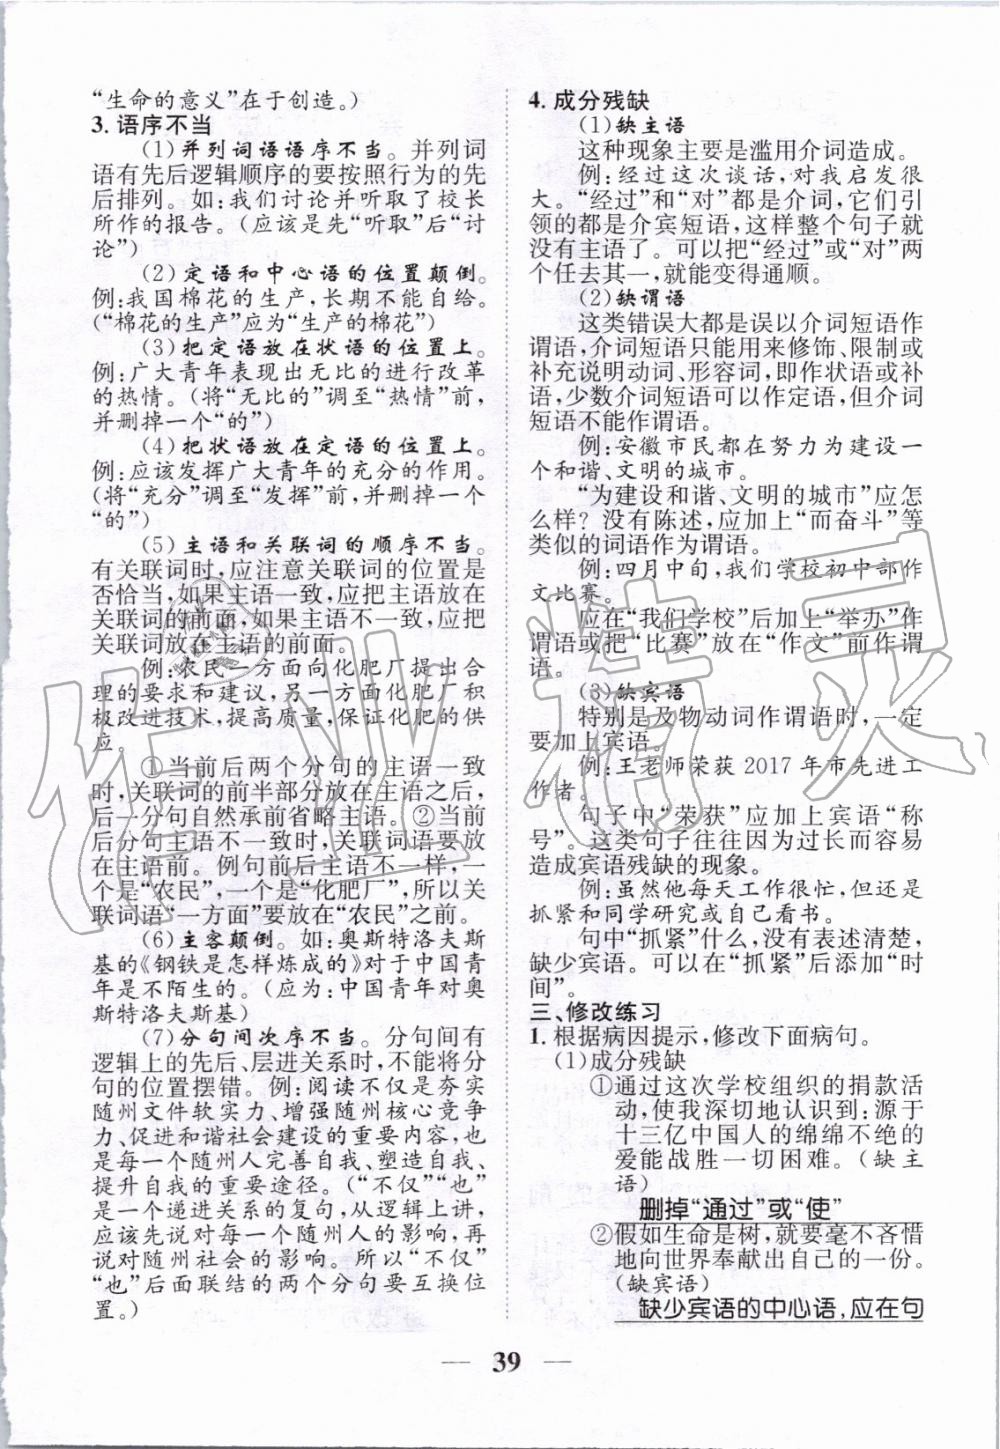 “生命的意义”在于创造。)
3. 语序不当
(1) 并列词语语序不当。并列词
语有先后逻辑顺序的要按照行为的先
后排列。如:我们讨论并听取了校长
所作的报告。(应该是先“听取”后“讨
论”)
(2) 定语和中心语的位置颠倒。
例:我国棉花的生产,长期不能自给。
(“棉花的生产”应为“生产的棉花”)
(3) 把定语放在状语的位置上。
例:广大青年表现出无比的进行改革
的热情。(将“无比的”调至“热情”前,
并删掉一个“的”)
(4) 把状语放在定语的位置上。
例:应该发挥广大青年的充分的作用。
(将“充分”调至“发挥”前,并删掉一个
“的”)
(5) 主语和关联词的顺序不当。
有关联词时,应注意关联词的位置是
否恰当,如果主语一致,应把主语放在
关联词的前面,如果主语不一致,应把
关联词放在主语的前面。
例:农民一方面向化肥厂提出合
理的要求和建议,另一方面化肥厂积
极改进技术,提高质量,保证化肥的供
应。
①当前后两个分句的主语一致
时,关联词的前半部分放在主语之后,
后一分句自然承前省略主语。②当前
后分句主语不一致时,关联词语要放
在主语前。例句前后主语不一样,一
个是“农民”,一个是“化肥厂”,所以关
联词语“一方面”要放在“农民”之前。
(6) 主客颠倒。如:奥斯特洛夫斯
基的《钢铁是怎样炼成的》对于中国青
年是不陌生的。(应为:中国青年对奥
斯特洛夫斯基)
(7) 分句间次序不当。分句间有
逻辑上的先后、层进关系时,不能将分
句的位置摆错。例:阅读不仅是夯实
随州文件软实力、增强随州核心竞争
力、促进和谐社会建设的重要内容,也
是每一个随州人完善自我、塑造自我、
提升自我的重要途径。(“不仅”“也”
是一个递进关系的复句,从逻辑上讲,
应该先说对每一个随州人的影响,再
说对随州社会的影响。所以“不仅”
“也”后面联结的两个分句要互换位
置。)
4. 成分残缺
(1) 缺主语
这种现象主要是滥用介词造成。
例:经过这次谈话,对我启发很
大。“经过”和“对”都是介词,它们引
领的都是介宾短语,这样整个句子就
没有主语了。可以把“经过”或“对”两
个任去其一,就能变得通顺。
(2) 缺谓语
这类错误大都是误以介词短语作
谓语,介词短语只能用来修饰、限制或
补充说明动词、形容词,即作状语或补
语,少数介词短语可以作定语,但介词
短语不能作谓语。
例:安徽市民都在努力为建设一
个和谐、文明的城市。
“为建设和谐、文明的城市”应怎
么样?没有陈述,应加上“而奋斗”等
类似的词语作为谓语。
例:四月中旬,我们学校初中部作
文比赛。
应在“我们学校”后加上“举办”作
谓语或把“比赛”放在“作文”前作谓
语。
(3) 缺宾语
特别是及物动词作谓语时,一定
要加上宾语。
例:王老师荣获 2017 年市先进工
作者。
句子中“荣获”应加上宾语“称
号”。这类句子往往因为过长而容易
造成宾语残缺的现象。
例:虽然他每天工作很忙,但还是
抓紧和同学研究或自己看书。
句中“抓紧”什么,没有表述清楚,
缺少宾语。可以在“抓紧”后添加“时
间”。
三、修改练习
1. 根据病因提示,修改下面病句。
(1)成分残缺
①通过这次学校组织的捐款活
动,使我深切地认识到:源于
十三亿中国人的绵绵不绝的
爱能战胜一切困难。(缺主
语)
删掉“通过”或“使”
②假如生命是树,就要毫不吝惜
地向世界奉献出自己的一份。
(缺宾语)
缺少宾语的中心语,应在句
— 39 —
作业精灵